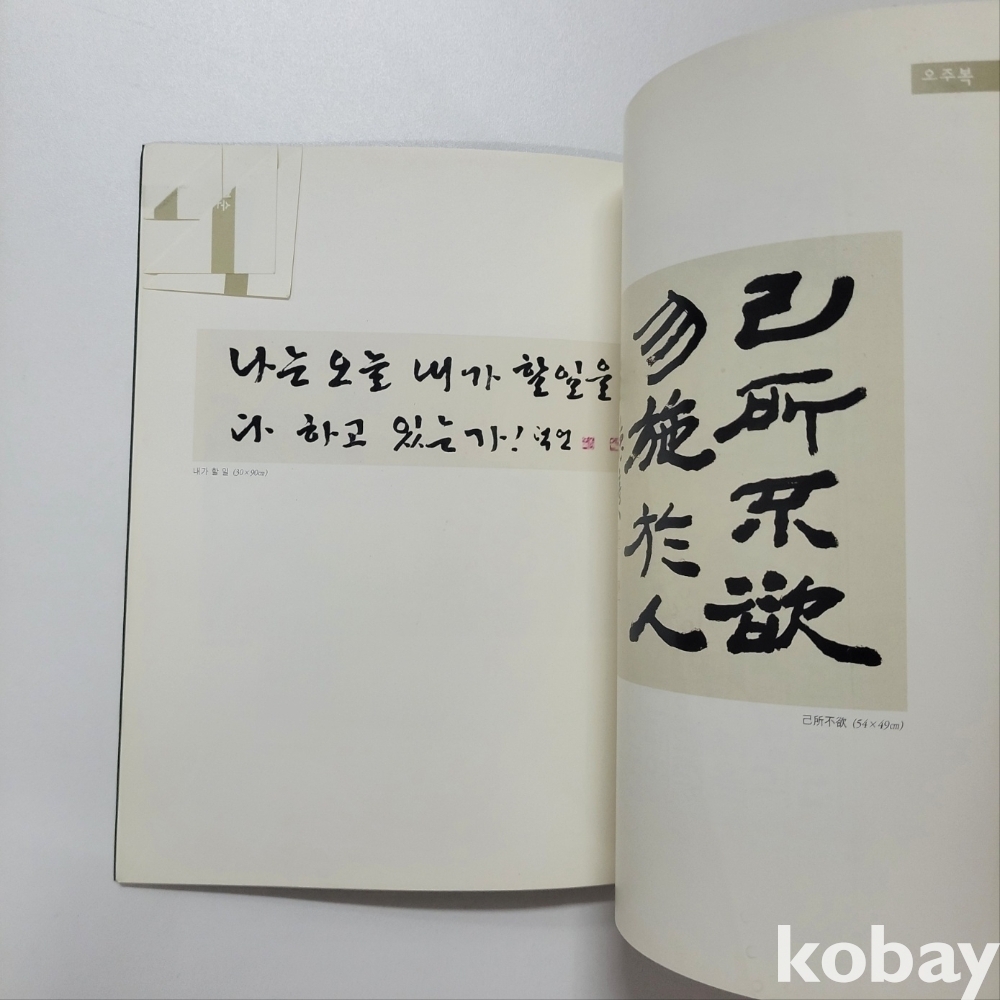 나는 오늘 내가 할일을
다 하고 있는가!
내가 할 일 (30×90㎝)
오주복
己所不欲
勿施於人
己所不欲 (54×49㎝)
kobay